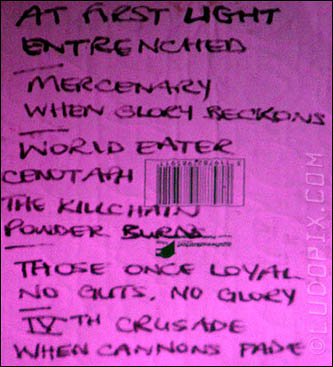 AT FIRST LIGHT
ENTRENCHED
MERCENARY
WHEN GLORY BECKONS
WORLD EATER
CENOTAPH
THE KILLCHAIN
POWDER BURNS
THOSE ONCE LOYAL
NO GUTS, NO GLORY
IVTH CRUSADE
WHEN CANNONS FADE
©LUDOPIX.COM